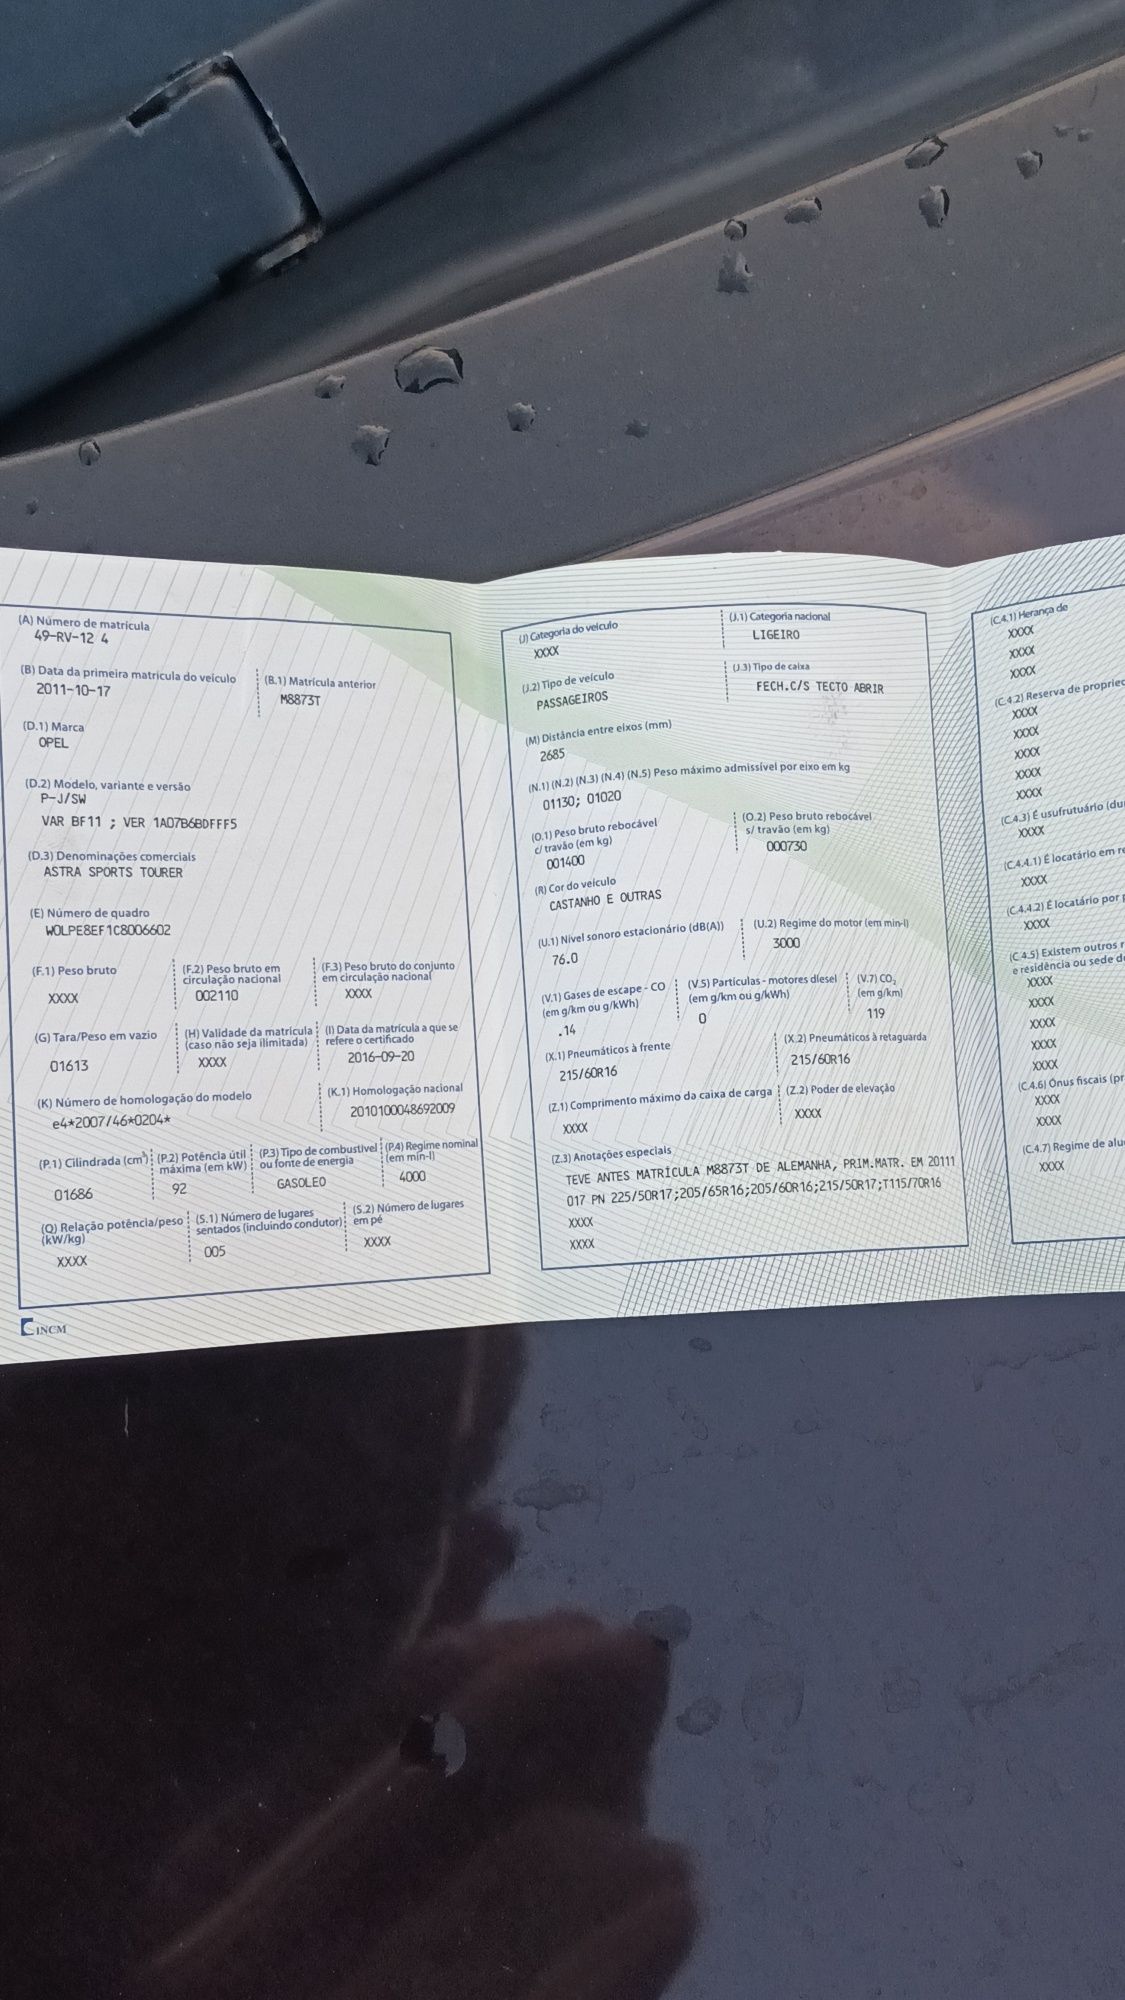 (A) Número de matrícula
49-RV-12 4
(B) Data da primeira matrícula do veículo
2011-10-17
(B.1) Matrícula anterior
M8873T
(D.1) Marca
OPEL
(D.2) Modelo, variante e versão
P-J/SW
VAR BF11 ; VER 1A07B6BDFFF5
(D.3) Denominações comerciais
ASTRA SPORTS TOURER
(E) Número de quadro
WOLPE8EF1C8006602
(F.1) Peso bruto
XXXX
(F.2) Peso bruto em
circulação nacional
002110
(F.3) Peso bruto do conjunto
em circulação nacional
XXXX
(G) Tara/Peso em vazio
01613
(H) Validade da matrícula
(caso não seja ilimitada)
XXXX
(I) Data da matrícula a que se
refere o certificado
2016-09-20
(K) Número de homologação do modelo
e4*2007/46*0204*
(K.1) Homologação nacional
2010100048692009
(P.1) Cilindrada (cm³)
01686
(P.2) Potência útil
máxima (em kW)
92
(P.3) Tipo de combustível
ou fonte de energia
GASOLEO
(P.4) Regime nominal
(em min-l)
4000
(Q) Relação potência/peso
(kW/kg)
XXXX
(S.1) Número de lugares
sentados (incluindo condutor)
005
(S.2) Número de lugares
em pé
XXXX
INCM
(J) Categoria do veículo
XXXX
(J.1) Categoria nacional
LIGEIRO
(J.2) Tipo de veículo
PASSAGEIROS
(J.3) Tipo de caixa
FECH.C/S TECTO ABRIR
(M) Distância entre eixos (mm)
2685
(N.1) (N.2) (N.3) (N.4) (N.5) Peso máximo admissível por eixo em kg
01130; 01020
(O.1) Peso bruto rebocável
c/ travão (em kg)
001400
(O.2) Peso bruto rebocável
s/ travão (em kg)
000730
(R) Cor do veículo
CASTANHO E OUTRAS
(U.1) Nível sonoro estacionário (dB(A))
76.0
(U.2) Regime do motor (em min-l)
3000
(V.1) Gases de escape - CO
(em g/km ou g/kWh)
.14
(V.5) Partículas - motores diesel
(em g/km ou g/kWh)
0
(V.7) CO₂
(em g/km)
119
(X.1) Pneumáticos à frente
215/60R16
(X.2) Pneumáticos à retaguarda
215/60R16
(Z.1) Comprimento máximo da caixa de carga
XXXX
(Z.2) Poder de elevação
XXXX
(Z.3) Anotações especiais
TEVE ANTES MATRÍCULA M8873T DE ALEMANHA, PRIM.MATR. EM 20111
017 PN 225/50R17;205/65R16;205/60R16;215/50R17;T115/70R16
XXXX
XXXX
(C.4.1) Herança de
XXXX
XXXX
XXXX
(C.4.2) Reserva de
XXXX
XXXX
XXXX
XXXX
XXXX
(C.4.3) É usufrutuário
XXXX
(C.4.4.1) É locatário em
XXXX
(C.4.4.2) É locatário por
XXXX
(C.4.5) Existem outros
e residência ou sede
XXXX
XXXX
XXXX
XXXX
XXXX
(C.4.6) Ónus fiscais
XXXX
XXXX
(C.4.7) Regime de
XXXX